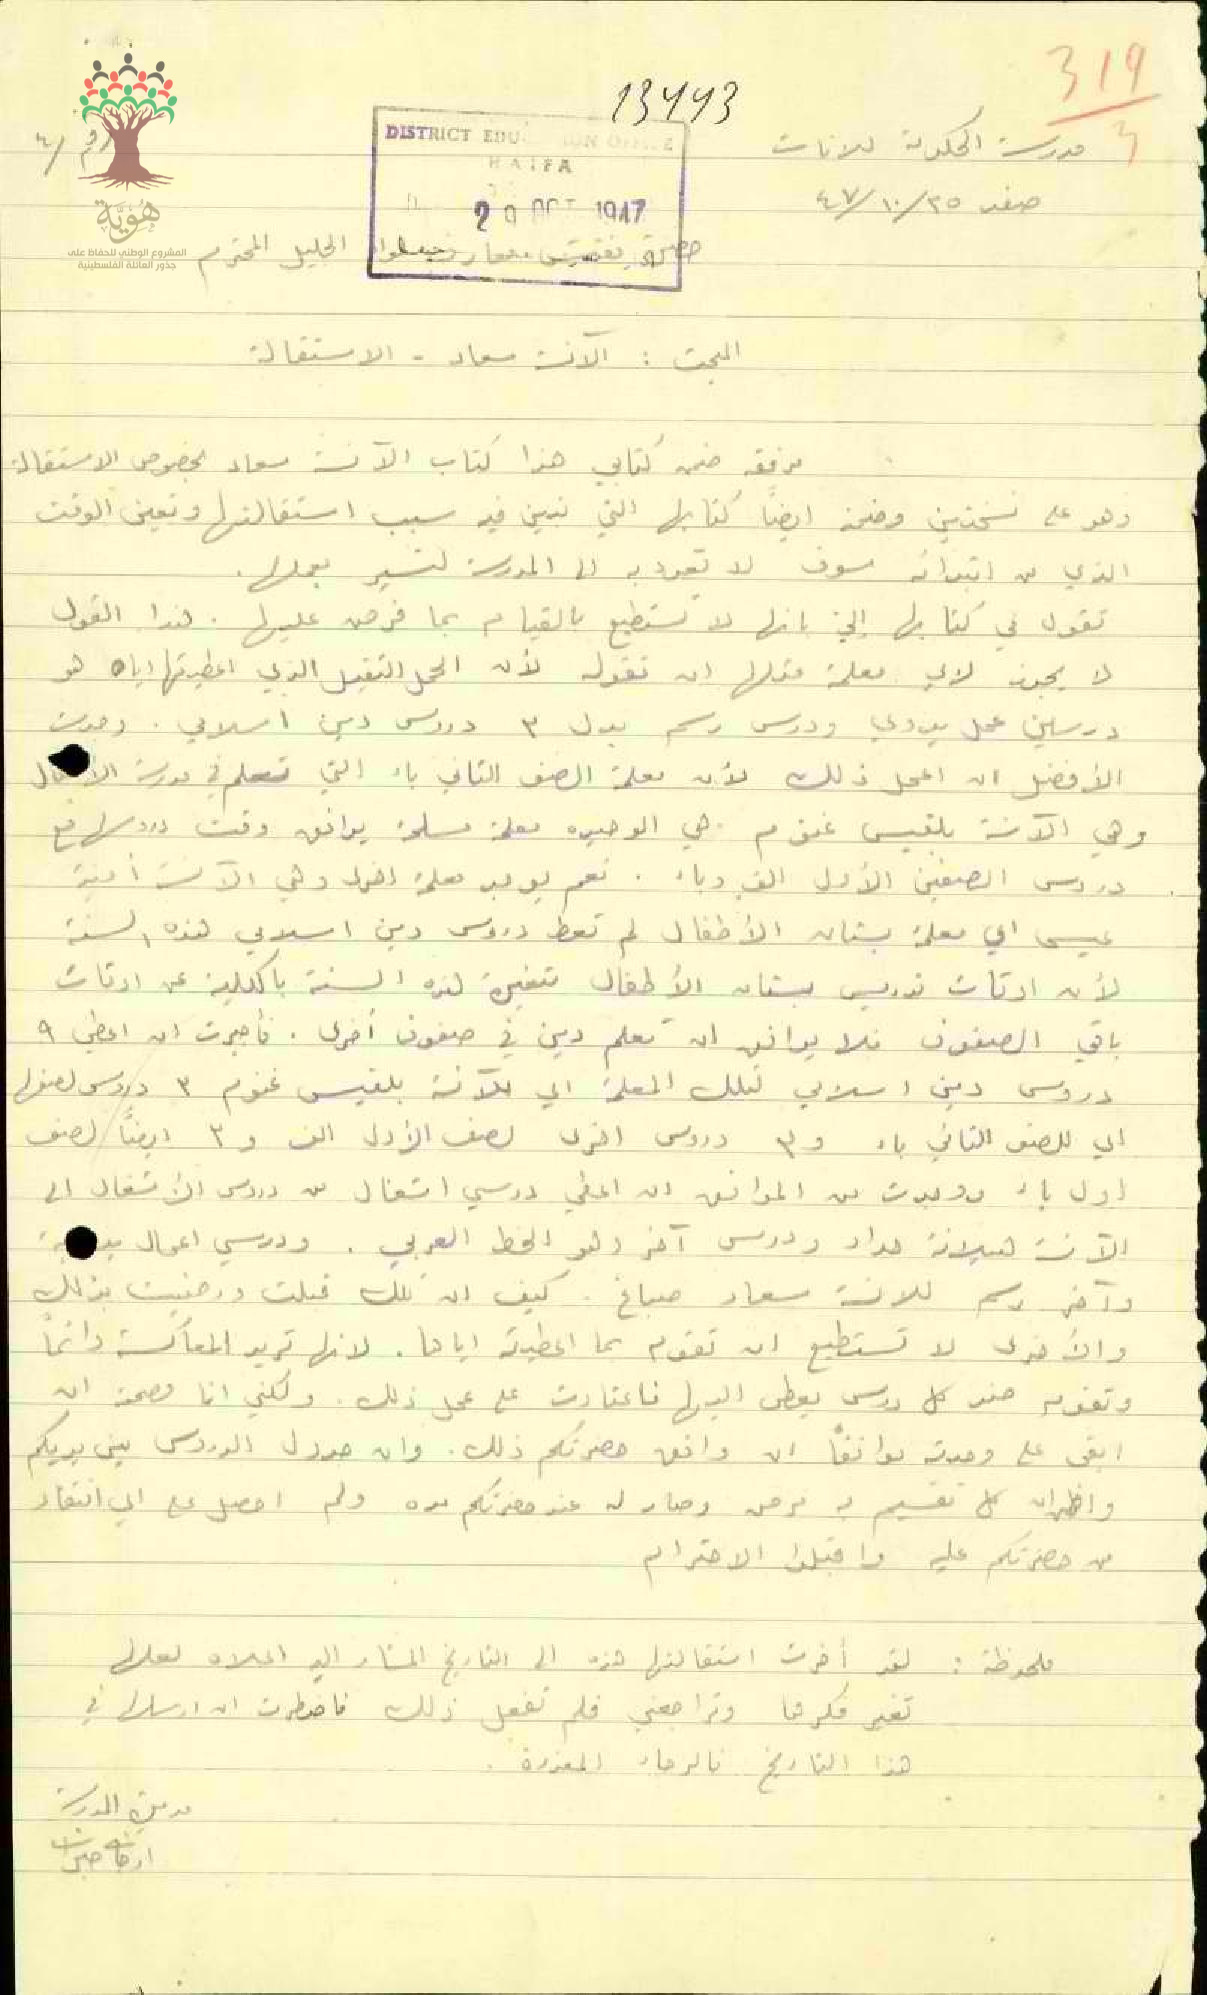 319
3
13443
مدرسة الحكومة للاناث
صفد ٢٥/١٠/٤٧
DISTRICT EDUCATION OFFICE
HAIFA
29 OCT 1947
هُوِيَّة
المشروع الوطني للحفاظ على
جذور العائلة الفلسطينية
حضرة مفتش معارف لواء الجليل المحترم
البحث : الآنسة سعاد - الاستقالة
مرفقه ضمن كتابي هذا كتاب الآنسة سعاد بخصوص الاستقالة
وهو على نسختين وضمنه ايضاً كتابها التي تبين فيه سبب استقالتها وتعين الوقت
الذي من ابتدائه سوف لا تعود به الى المدرسة لتسير بعملها .
تقول في كتابها إليّ بانها لا تستطيع بالقيام بما فرض عليها . هذا القول
لا يجوز لاي معلمة مثلها ان تقوله لأن الحمل الثقيل الذي اعطيتها اياه هو
درسين عمل يدوي ودرس رسم بدل ٣ دروس دين اسلامي . وجدت
الأفضل ان اعمل ذلك لأن معلمة الصف الثاني باء التي تعلم في مدرسة الأطفال
وهي الآنسة بلقيس غنوم هي الوحيده معلمة مسلمة يوافق وقت دروسها مع
دروس الصفين الأول الف وباء . نعم يوجد معلمة اخرى وهي الآنسة أمينة
عيسى اي معلمة بستان الأطفال لم تعط دروس دين اسلامي هذه السنة
لأن اوقات تدريس بستان الأطفال متغيرة هذه السنة بالكلية عن اوقات
باقي الصفوف فلا يوافق ان تعلم دين في صفوف أخرى . فأجبرت ان اعطي ٩
دروس دين اسلامي لتلك المعلمة اي للآنسة بلقيس غنوم ٣ دروس لصفها
اي للصف الثاني باء و ٣ دروس اخرى لصف الأول الف و ٣ ايضاً لصف
اول باء ووجدت من الموافق ان اعطي درسي اشغال من دروس الأشغال الى
الآنسة هيلانة حداد ودرس آخر وهو الخط العربي . ودرسي اعمال يدوية
وآخر رسم للانسة سعاد صباغ . كيف ان تلك قبلت ورضيت بذلك
والأخرى لا تستطيع ان تقوم بما اعطيته اياها . لانها تريد المعاكسة دائماً
وتقوم ضد كل درس يعطى اليها فاعتادت على عمل ذلك . ولكني انا مصممة ان
ابقى على وجدته موافقاً ان وافق حضرتكم ذلك . وان جدول الدروس بين يديكم
واظهران كل تقسيم به مرض وصار له عند حضرتكم مده ولم احصل على اي انتقاد
من حضرتكم عليه واقبلوا الاحترام
ملحوظة : لقد أخرت استقالتها هذه الى التاريخ المشار اليه اعلاه لعلها
تغير فكرها وتراجعني فلم تفعل ذلك فاضطرت ان ارسلها في
هذا التاريخ فالرجاء المعذرة .
مديرة المدرسة